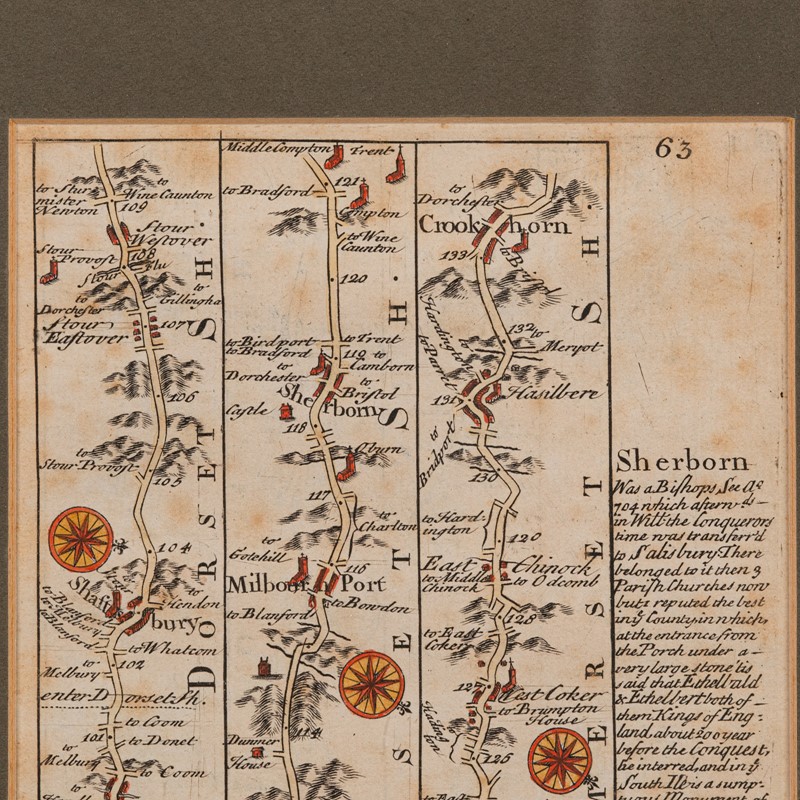 63
to Stur=
mister
Newton
to
Wine Caunton
109
Stour
Westover
Stour
Provost
108
Stour Flu
to
Dorchester
to
Gillingha
Stour
Eastover
107
106
Stour Provost
105
104
Shaftsbury
to Hendon
to Blanford
to Whatcom
to
Melbury
102
enter Dorset Sh.
to Coom
101
to Donet
to
Melbury
to Coom
DORSET SH.
Middle Compton
Trent
to Bradford
121
Compton
to Wine
Caunton
120
to Birdport
to Trent
to Bradford
119
to
Camborn
to
Dorchester
to
Bristol
Sherborn
Castle
118
Oburn
117
to
Charlton
to
Gotehill
116
Milbourn Port
to Bowdon
to Blanford
114
Dunmer
House
SET SH.
to
Dorchester
Crookhorn
133
to Bristol
Hardington
132
to
Meryot
to Parret
Hasilbere
131
to
Bridport
130
to Hard-
ington
120
East Chinock
to Middle
Chinock
to Odcomb
128
to East
Coker
127
West Coker
to Brumpton
House
125
to East
MERSET SH.
Sherborn
Was a Bishops See Aº
704 which afterwds
in Willt the Conquerors
time was transferr'd
to Salisbury There
belonged to it then 3
Parish Churches now
but 1 reputed the best
in ÿ County, in which,
at the entrance from
the Porch under a
very large stone 'tis
said that Ethellbald
& Ethelbert both of
them Kings of Eng=
land, about 200 year
before the Conquest,
lie interred, and in ÿ
South Ile is a sump=
tuous Monument of